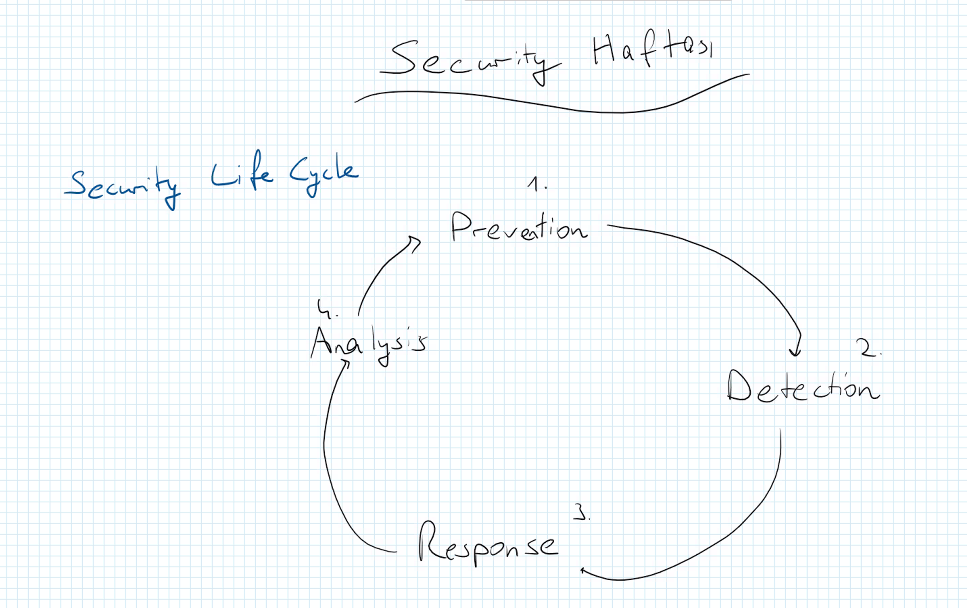 Security Haftası
Security Life Cycle
1.
Prevention
2.
Detection
3.
Response
4.
Analysis